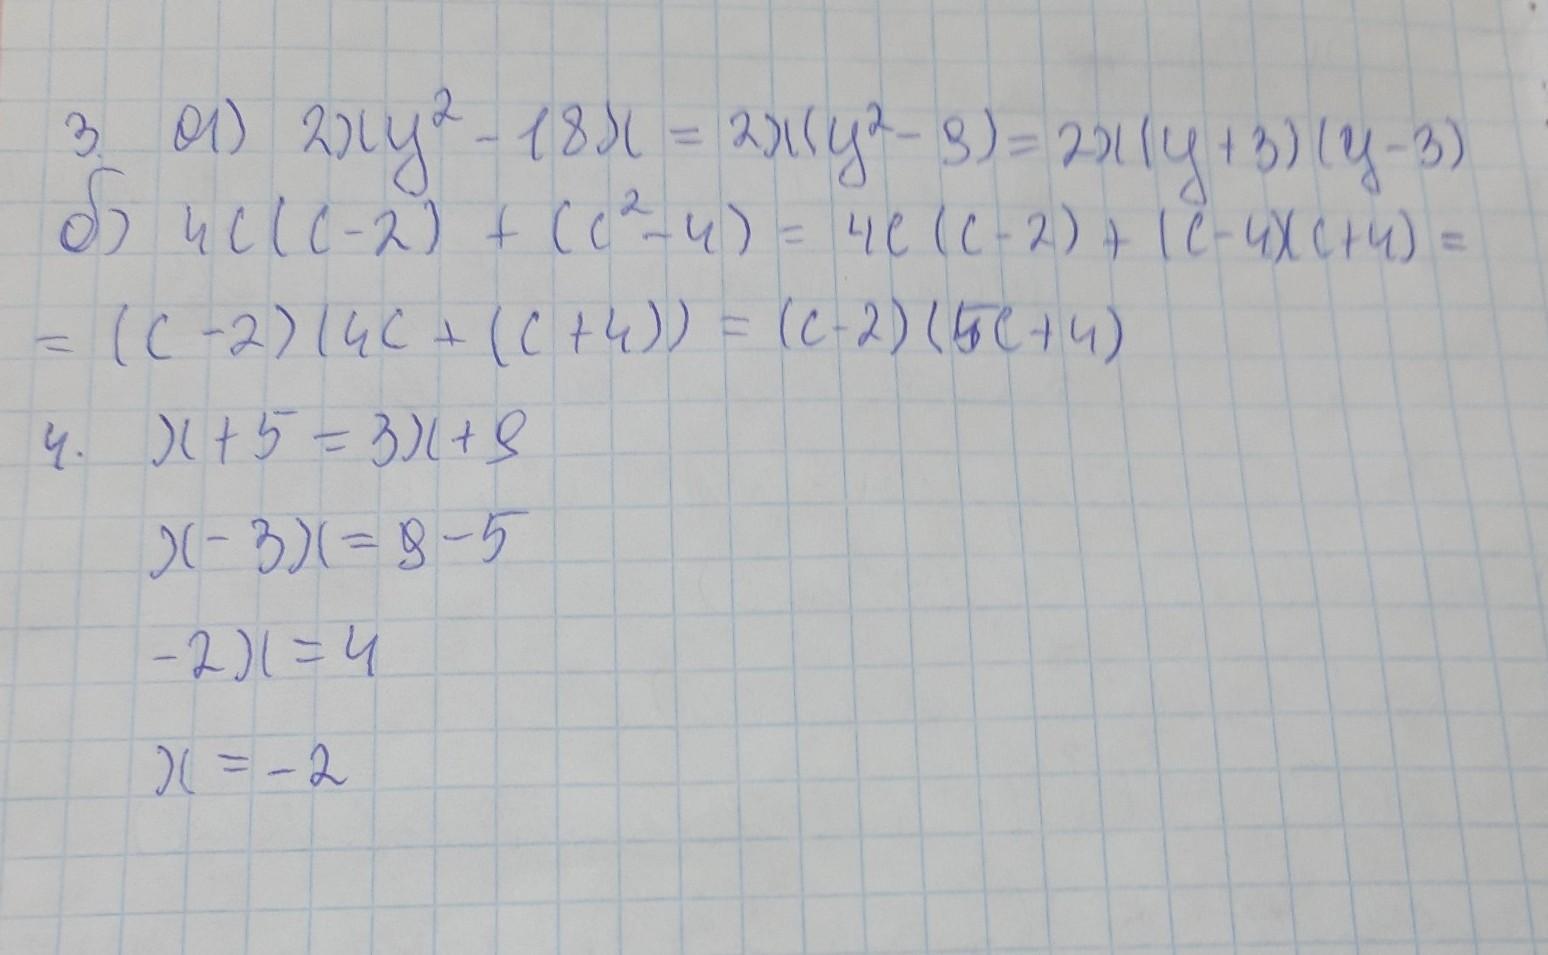 3. а) 2xy² - 18x = 2x(y² - 9) = 2x(y + 3)(y - 3)
б) 4c(c - 2) + (c² - 4) = 4c(c - 2) + (c - 4)(c + 4) =
= (c - 2)(4c + (c + 4)) = (c - 2)(5c + 4)
4. x + 5 = 3x + 9
x - 3x = 9 - 5
-2x = 4
x = -2